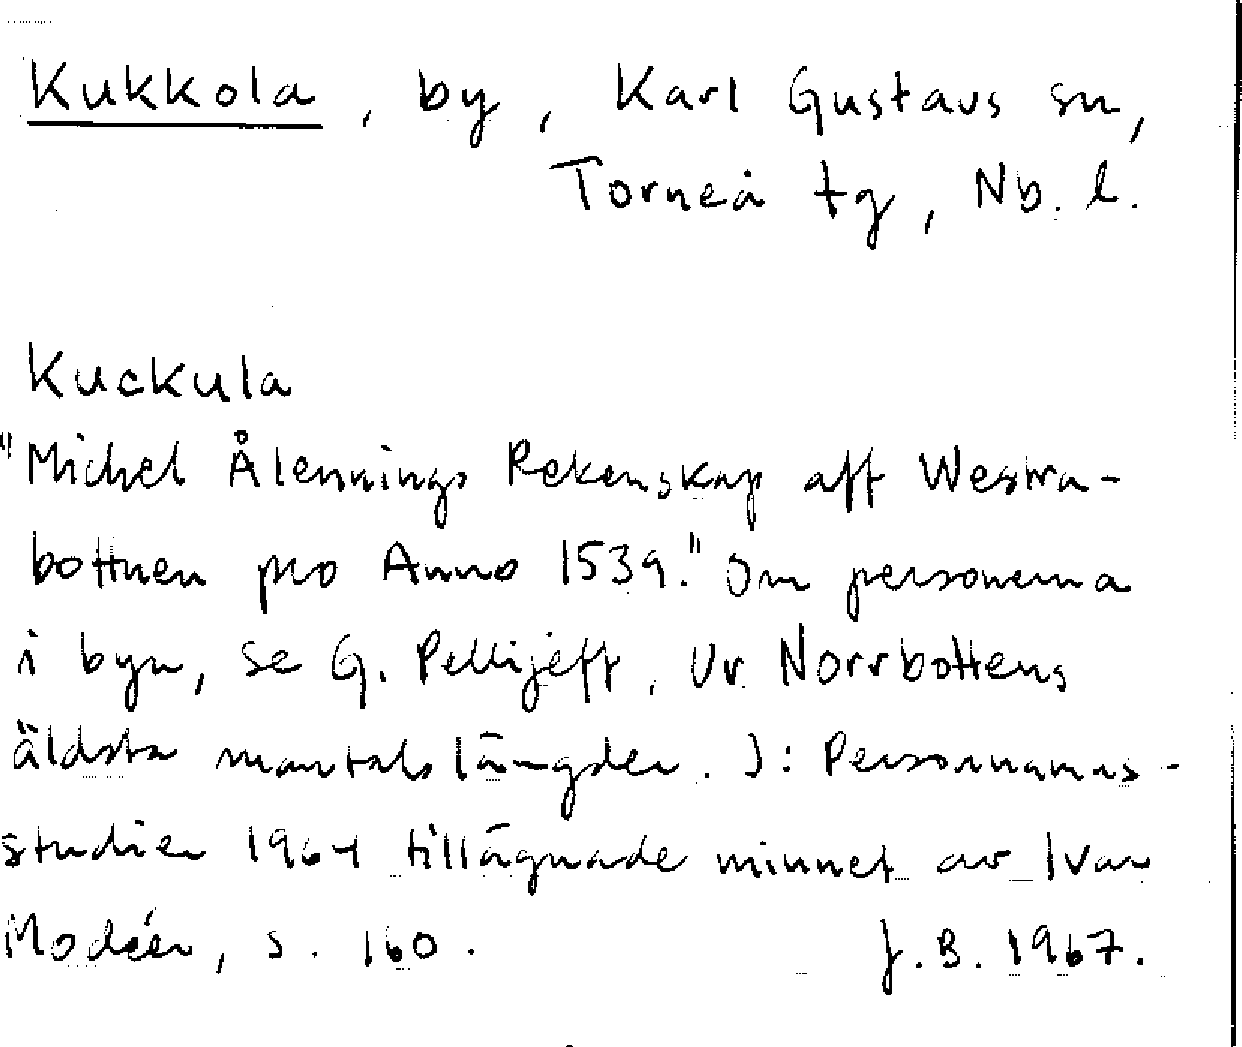 Kukkola, by, Karl Gustavs sn,
Torneå tg, Nb. l.
Kuckula
"Michel Ålennings Rekenskap aff Westra-
bottnen pro Anno 1539." Om personerna
i byn, se G. Pellijeff, Ur Norrbottens
äldsta mantalslängder. I: Personnamns-
studier 1964 tillägnade minnet av Ivar
Modéer, s. 160. J. B. 1967.